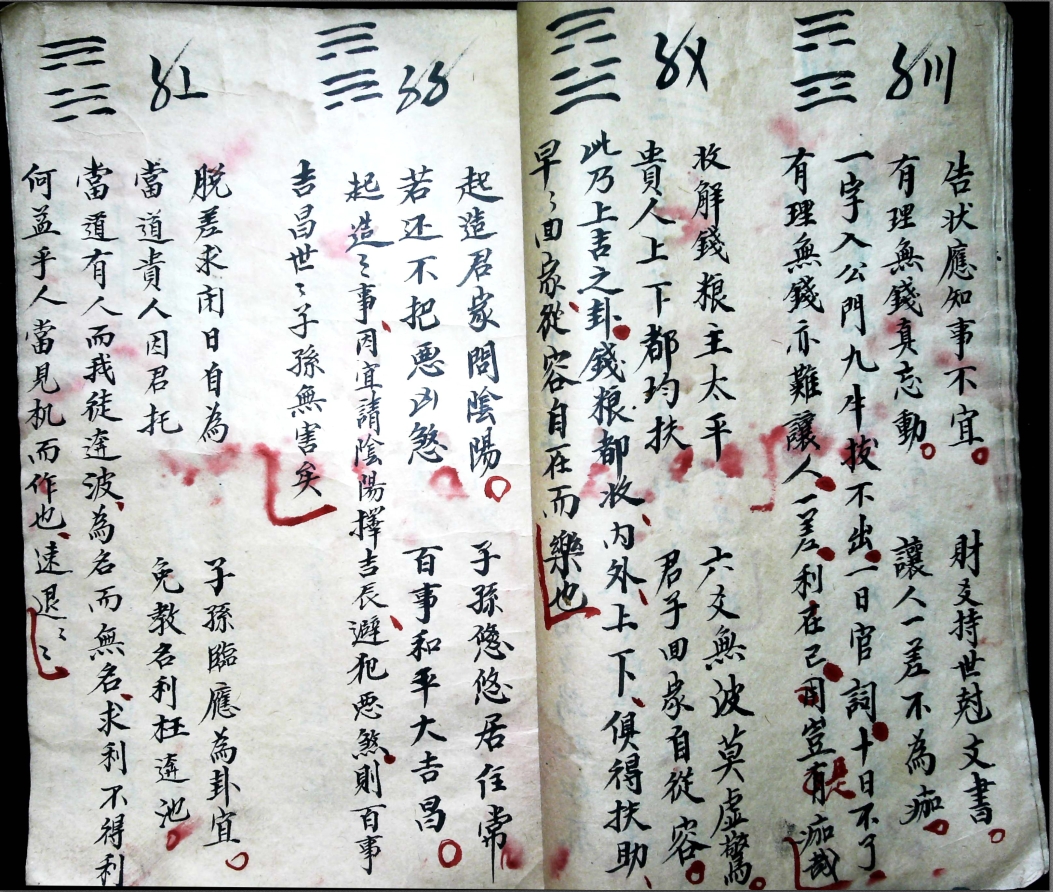 告状應知事不宜 財爻持世尅文書
有理無錢真忘動 讓人一差不為痴
一字入公門九牛拔不出一日官詞十日不了
有理無錢亦難讓人一差利在己因豈有痴哉
收解錢粮主太平 六爻無波莫虛驚
貴人上下都均扶 君子回家自從容
此乃上吉之卦錢粮都收内外上下俱得扶助
早〻回家從容自在而樂也
起造君家問陰陽 子孫悠悠居住常
若还不把惡凶煞 百事和平大吉昌
起造〻事因宜請陰陽擇吉辰避犯惡煞則百事
吉昌世〻子孫無害矣
脱差求闭日自為 子孫臨應為卦宜
當道貴人因君托 免教名利枉奔池
當道有人而我徒奔波為名而無名求利不得利
何益乎人當見机而作也速退〻〻